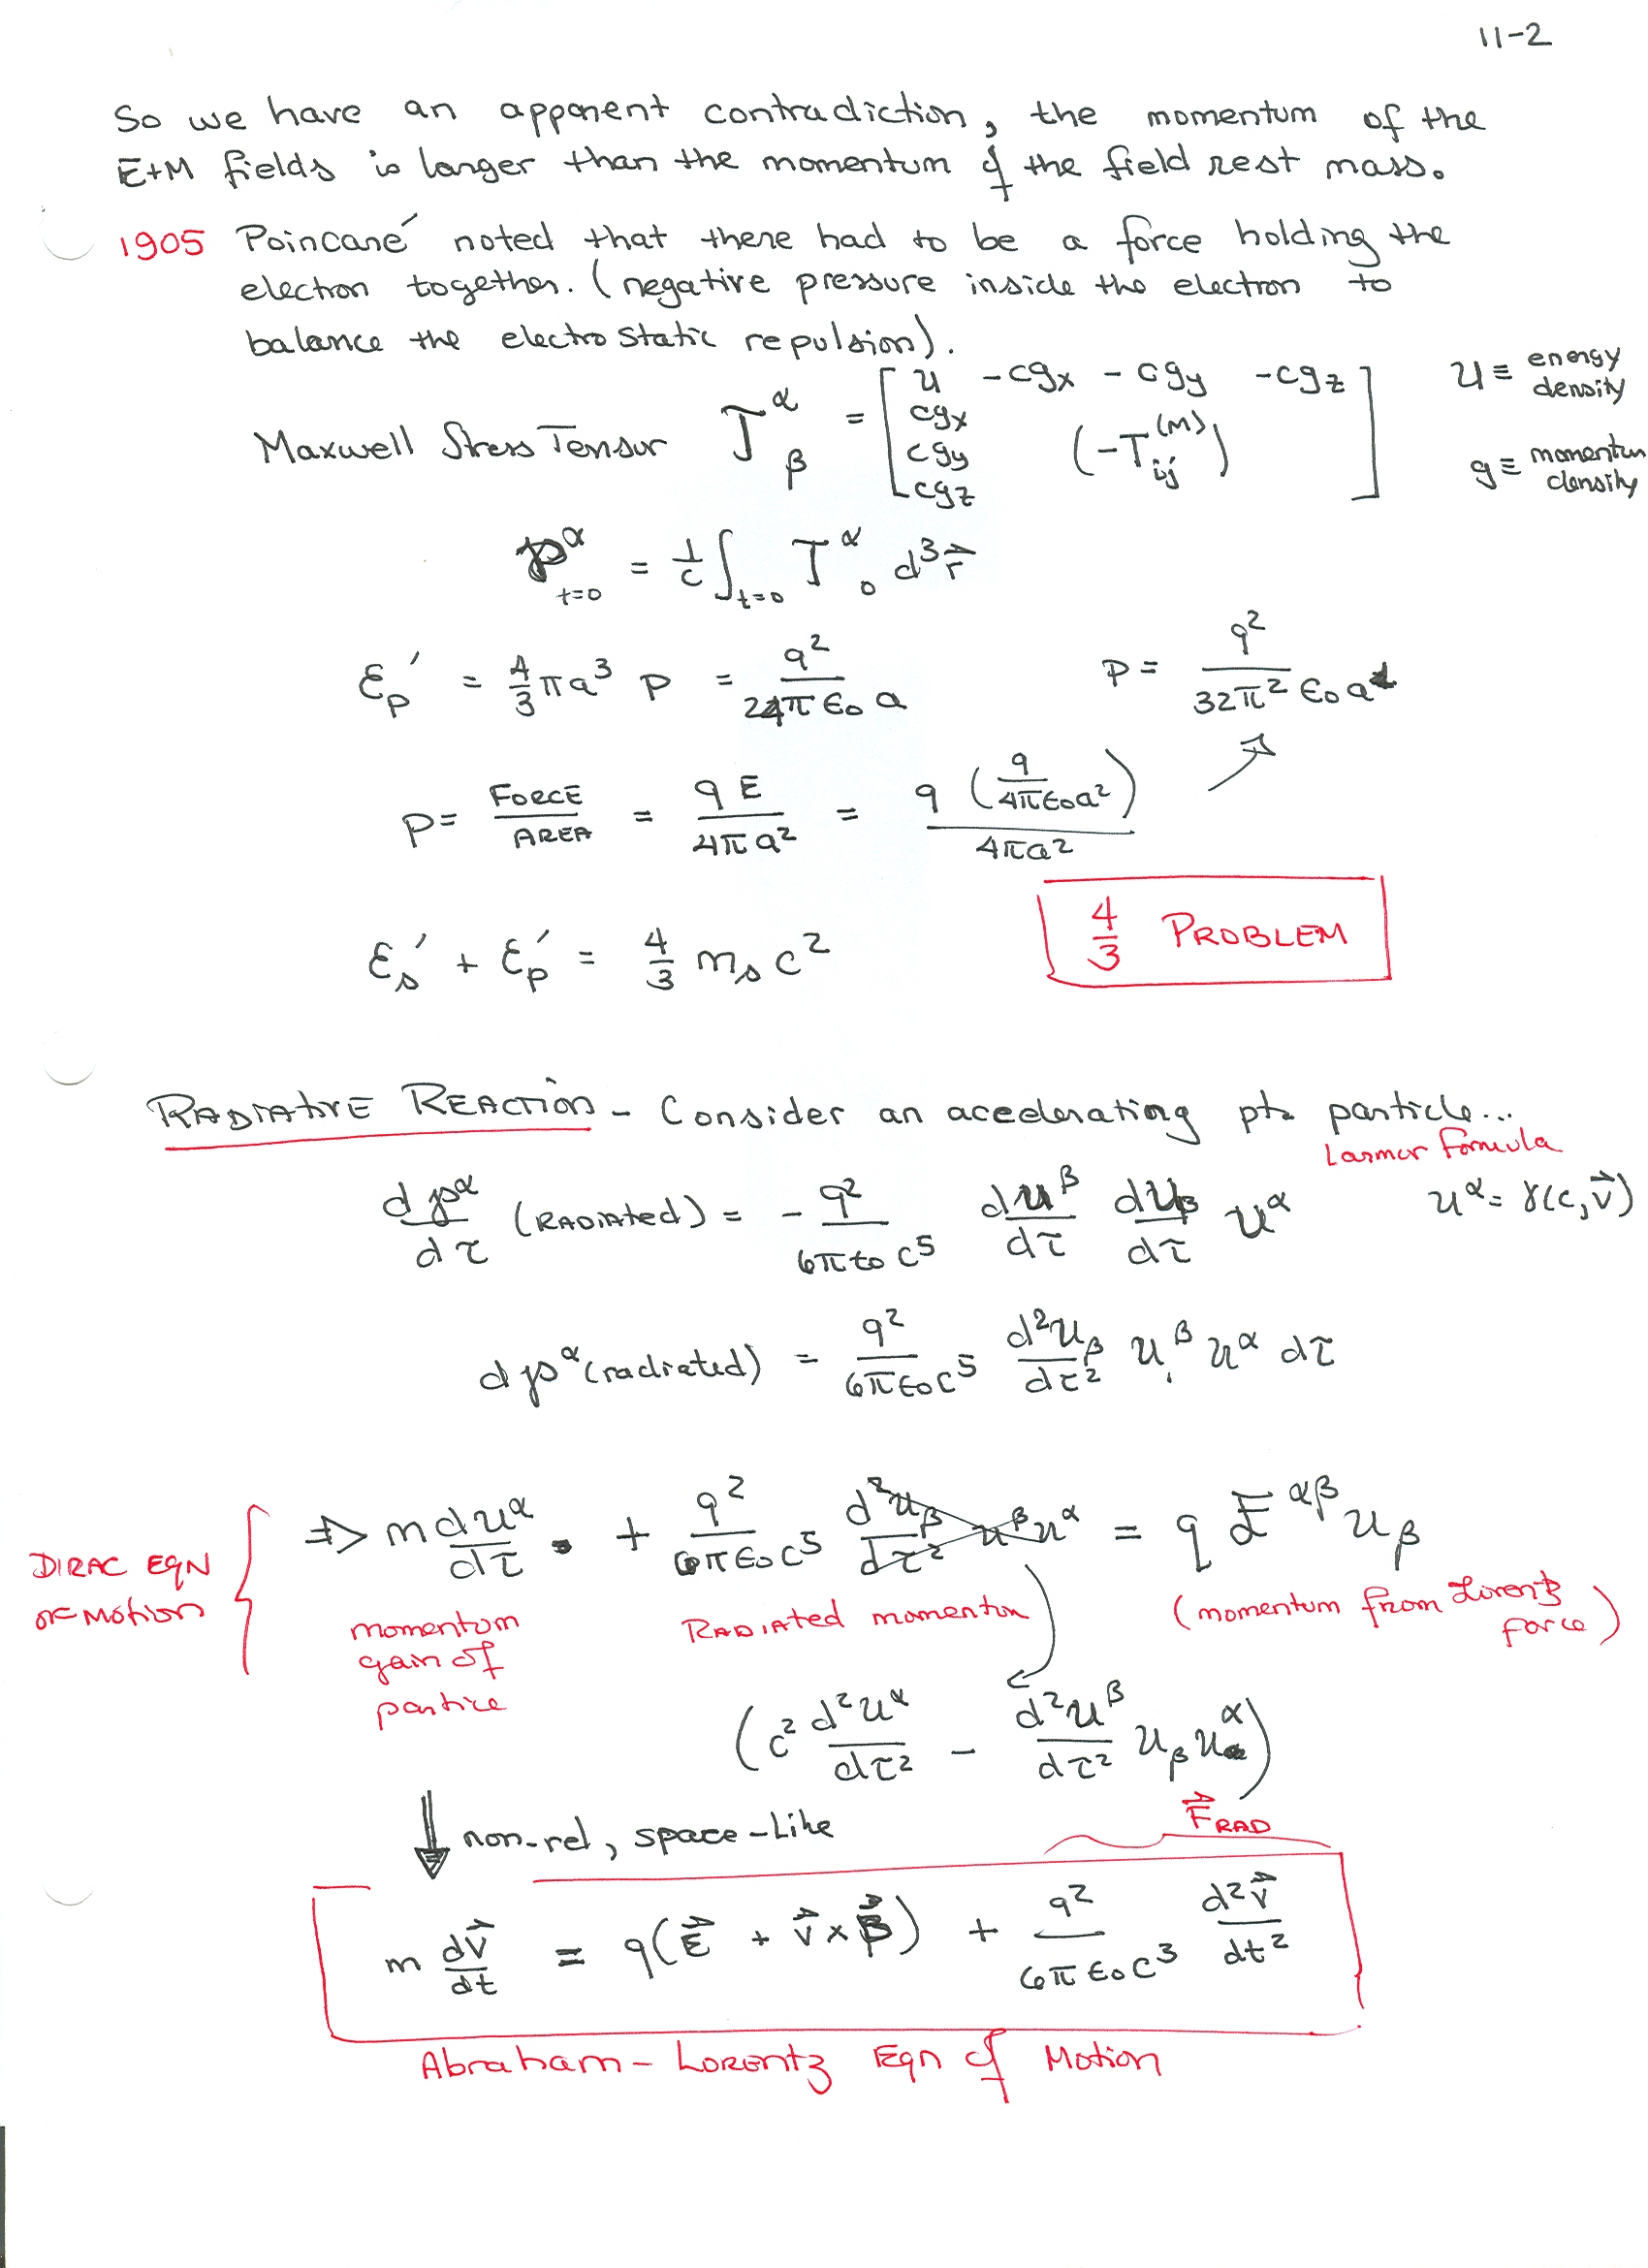 11-2
So we have an apparent contradiction, the momentum of the
E+M fields is larger than the momentum of the field rest mass.
1905 Poincaré noted that there had to be a force holding the
electron together. (negative pressure inside the electron to
balance the electrostatic repulsion).
Maxwell Stress Tensor T^α_β = [ u -cgx -cgy -cgz ; cgx cgy cgz (-T_ij^(M)) ] U ≡ energy density
g ≡ momentum density
p^α_{t=0} = 1/c ∫_{t=0} T^α_0 d³r⃗
ℰ_p' = 4/3 πa³ p = q²/(24π ε₀ a) p = q²/(32π² ε₀ a⁴)
p = FORCE/AREA = qE/(4πa²) = q (q/(4πε₀a²))/(4πa²)
ℰ_s' + ℰ_p' = 4/3 m_s c² 4/3 PROBLEM
RADIATIVE REACTION - Consider an acelerating pt. particle...
Larmor Formula
dp^α/dτ (RADIATED) = - q²/(6πε₀c⁵) du^β/dτ du_β/dτ u^α u^α = γ(c, v⃗)
dp^α (radiated) = q²/(6πε₀c⁵) d²u_β/dτ² u^β u^α dτ
DIRAC EQN OF MOTION
⇒ m du^α/dτ + q²/(6πε₀c⁵) d²u_β/dτ² u^β u^α = q F^{αβ} u_β
momentum gain of partice
RADIATED momentum
(momentum from Lorentz force)
(c² d²u^α/dτ² - d²u^β/dτ² u_β u^α)
non-rel, space-like
F⃗_RAD
m dv⃗/dt = q(E⃗ + v⃗ × B⃗) + q²/(6πε₀c³) d²v⃗/dt²
Abraham - Lorentz Eqn of Motion